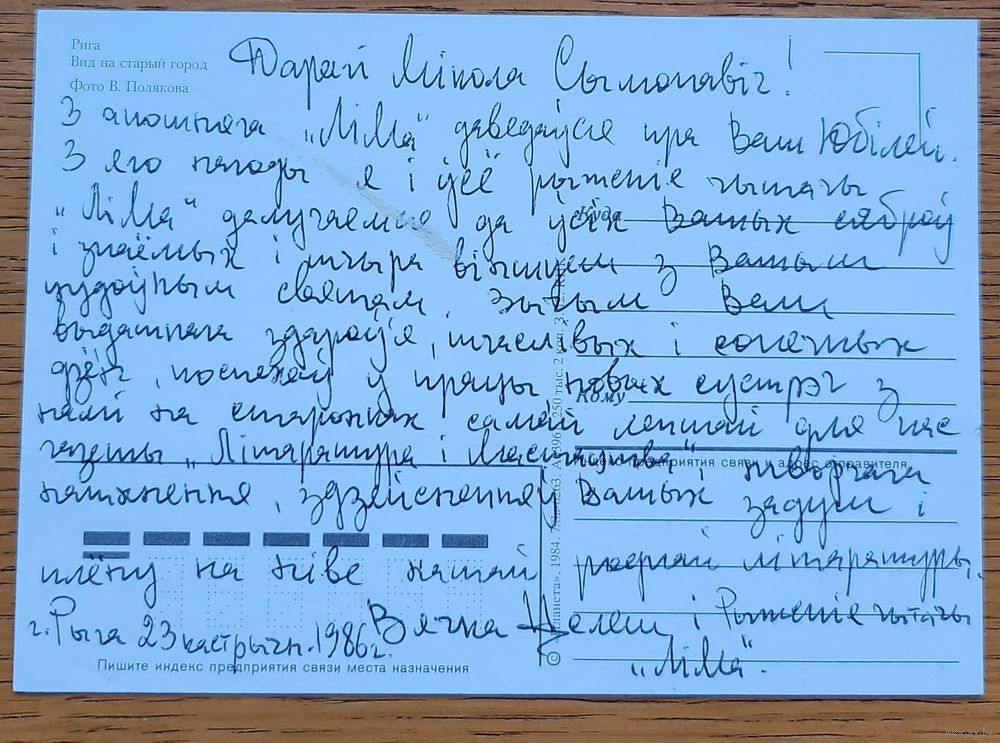 Рига
Вид на старый город
Фото В. Полякова
Дарагі Мікола Сымонавіч!
З апошняга „ЛіМа“ даведаўся пра Ваш Юбілей.
З яго нагоды я і ўсе рыжскія чытачы
„ЛіМа“ далучаемся да ўсіх Вашых сяброў
і знаёмых і шчыра віншуем з Вашым
цудоўным святам, зычым Вам
выдатнага здароўя, шчаслівых і сонечных
дзён, поспехаў у працы, новых сустрэч з
намі на старонках самай лепшай для нас
газеты „Літаратура і Мастацтва“ творчага
натхнення, здзяйсненняў Вашых задум і
плёну на ніве нашай роднай літаратуры.
г. Рыга 23 кастрычн. 1986 г. Вячка Целеш і Рыжскія чытачы
„ЛіМа“.
Куда
Кому
Индекс предприятия связи и адрес отправителя
Пишите индекс предприятия связи места назначения